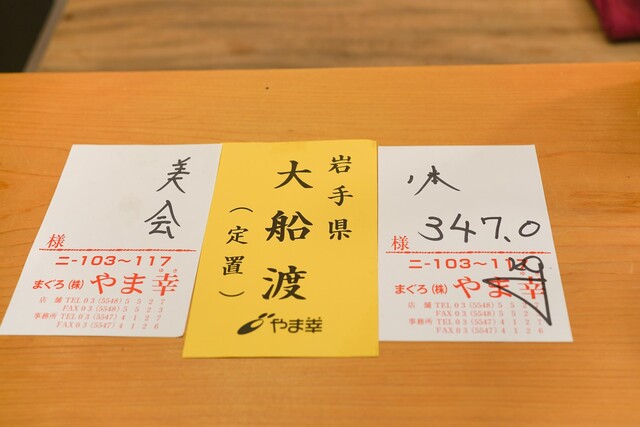 美会
様
ニ-103~117
まぐろ(株)やま幸
ゆき
店舗 TEL 03 (5548) 5527
FAX 03 (5548) 5523
事務所 TEL 03 (5547) 4127
FAX 03 (5547) 4126
岩手県
大船渡
(定置)
やま幸
本
347.0
様
ニ-103~117
まぐろ(株)やま幸
店舗 TEL 03 (5548) 5527
FAX 03 (5548) 5523
事務所 TEL 03 (5547) 4127
FAX 03 (5547) 4126